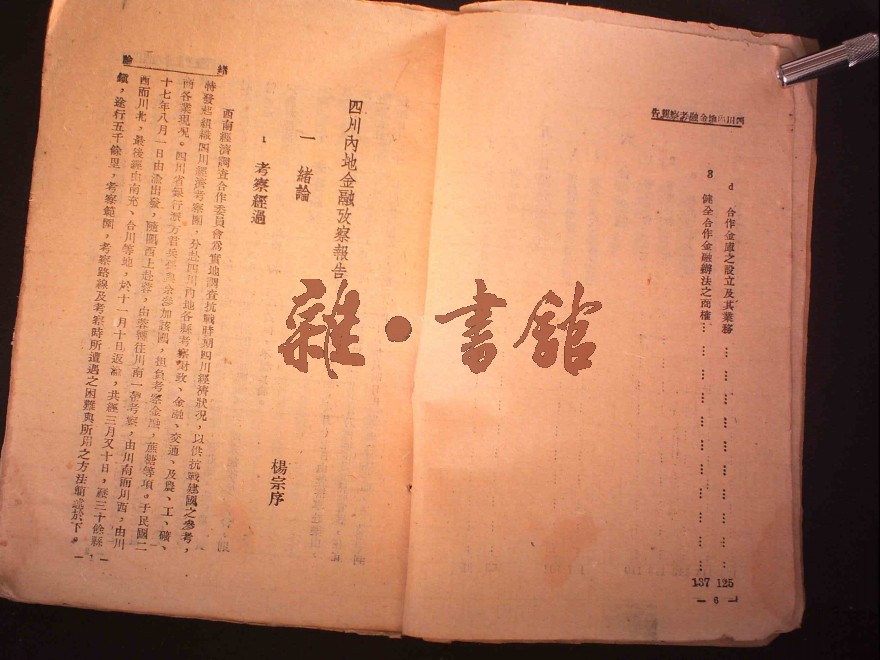 四川內地金融考察報告
d 合作金庫之設立及其業務 … … … … … … … … … 125
8 健全合作金融辦法之商榷 … … … … … … … … … … 137
— 6 —
四川內地金融攷察報告
楊宗序
一 緒論
1 考察經過
西南經濟調查合作委員會爲實地調查抗戰時期四川經濟狀況，以供抗戰建國之參考，
特發起組織四川經濟考察團，分赴四川內地各縣考察財政、金融、交通、及農、工、礦、
商各業現況。四川省銀行派方君兵 與余參加該團，担負考察金融，蔗糖等項。于民國二
十七年八月一日由渝出發，隨團西上赴蓉，由蓉轉往川南一帶考察，由川南而川西，由川
西而川北，最後經由南充、合川等地，於十一月十日返渝，共經三月又十日，歷三十餘縣
鎮，途行五千餘里，考察範圍，考察路線及考察時所遭遇之困難與所用之方法簡 於下。
緒 論
— 1 —
雜·書館